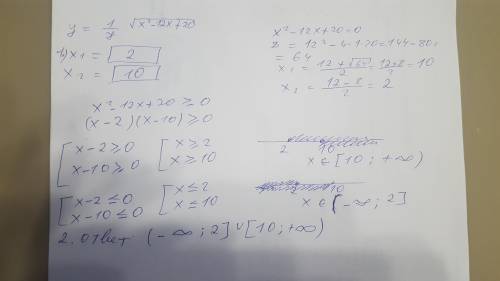 y = 1/y √x²-12x+20
1) x₁ = 2
x₂ = 10
x²-12x+20 ≥ 0
(x-2)(x-10) ≥ 0
[ x-2 ≥ 0 [ x ≥ 2
x-10 ≥ 0 x ≥ 10
[ x-2 ≤ 0 [ x ≤ 2
x-10 ≤ 0 x ≤ 10
2. Ответ (-∞; 2] ∪ [10; +∞)
x²-12x+20=0
= 12²-4·1·20=144-80=
= 64
x₁ = (12+√64)/2 = (12+8)/2 = 10
x₂ = (12-8)/2 = 2
2 10
x ∈ [10; +∞)
10
x ∈ (-∞; 2]